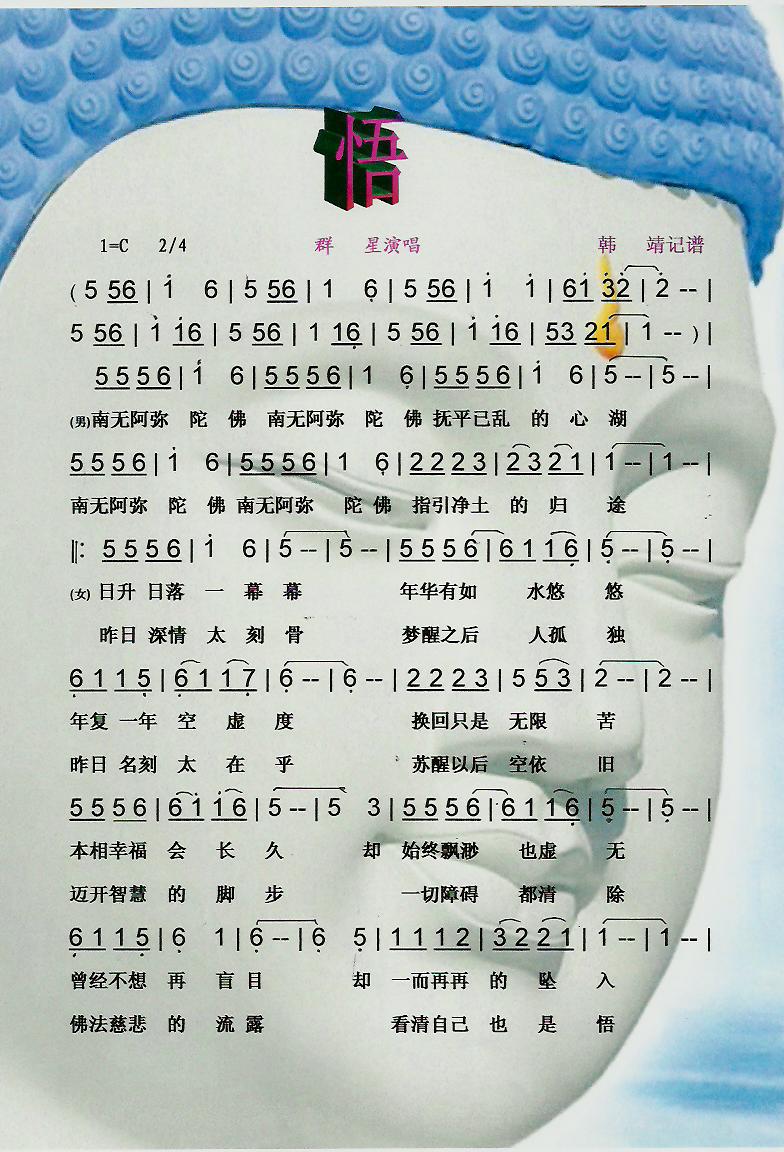 悟
1=C 2/4 群 星演唱 韩 靖记谱
( 5 56 | 1̇ 6 | 5 56 | 1 6̣ | 5 56 | 1̇ 1̇ | 61̇ 3̇2̇ | 2̇ -- |
5 56 | 1̇ 1̇6 | 5 56 | 1 16̣ | 5 56 | 1̇ 1̇6 | 53 21̇ | 1̇ -- ) |
5 5 5 6 | 1̇ 6 | 5 5 5 6 | 1 6̣ | 5 5 5 6 | 1̇ 6 | 5 -- | 5 -- |
(男)南无阿弥 陀 佛 南无阿弥 陀 佛 抚平已乱 的 心 湖
5 5 5 6 | 1̇ 6 | 5 5 5 6 | 1 6̣ | 2 2 2 3 | 2 3 2 1 | 1 -- | 1 -- |
南无阿弥 陀 佛 南无阿弥 陀 佛 指引净土 的 归 途
‖: 5 5 5 6 | 1̇ 6 | 5 -- | 5 -- | 5 5 5 6 | 6 1 1 6̣ | 5̣ -- | 5̣ -- |
(女) 日升 日落 一 幕 幕 年华有如 水悠 悠
昨日 深情 太 刻 骨 梦醒之后 人孤 独
6̣ 1 1 5̣ | 6̣ 1 1 7̣ | 6̣ -- | 6̣ -- | 2 2 2 3 | 5 5 3 | 2 -- | 2 -- |
年复 一年 空 虚 度 换回只是 无限 苦
昨日 名刻 太 在 乎 苏醒以后 空依 旧
5 5 5 6 | 6 1̇ 1̇ 6 | 5 -- | 5 3 | 5 5 5 6 | 6 1 1 6̣ | 5̣ -- | 5̣ -- |
本相幸福 会 长 久 却 始终飘渺 也虚 无
迈开智慧 的 脚 步 一切障碍 都清 除
6̣ 1 1 5̣ | 6̣ 1 | 6̣ -- | 6̣ 5̣ | 1 1 1 2 | 3 2 2 1 | 1 -- | 1 -- |
曾经不想 再 盲 目 却 一而再再 的 坠 入
佛法慈悲 的 流 露 看清自己 也 是 悟